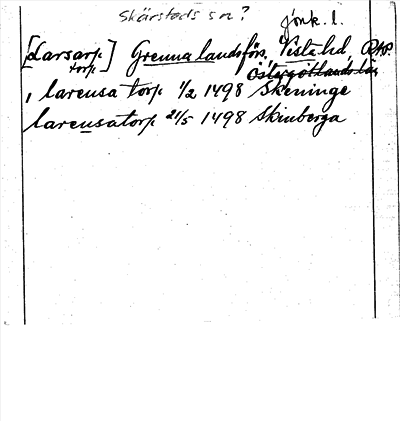 Skärstads sn?
jönk. l.
[Larsarp torp] Grenna landsförs. Vista hd
Östergötlands län
, larensa torp 1/2 1498 Skeninge
larensatorp 21/5 1498 Skinberga